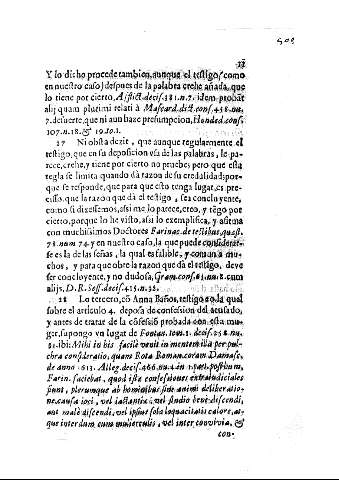 Y lo dicho procede tambien, aunque el testigo (como
en nuestro caso) despues de la palabra crehe añada, que
lo tiene por cierto, Afflict. decis. 381. n. 7. idem probāt
alij quam plurimi relati à Mascard. dict. conf. 458. nu.
7. de suerte, que ni aun haze presumpcion, Honded. conf.
107. n. 18. & 19. lo. 1.
17 Ni obsta dezir, que aunque regularmente el
testigo, que en su deposicion vsa de las palabras, le pa-
rece, crehe, y tiene por cierto no pruebes pero que esta
regla se limita quando dà razon de su credalidad; por-
que se responde, que para que esto tenga lugar, es pre-
cisso, que la razon que dà el testigo, sea concluyente,
como si dixessemos, assi me lo parece, creo, y tēgo por
cierto, porque lo he visto, assi lo exemplifica, y afirma
con muchissimos Doctores Farinac. de testibus, quæst.
73. num 74. y en nuestro caso, la que puede considerar-
se es la de las señas, la qual es falible, y comun à mu-
chos, y para que obre la razon que dà el testigo, deve
ser concluyente, y no dudosa, Gram. conf. 61. nu. 8. cum
alijs, D. R. Sesse, decis. 415. n. 32.
18 Lo tercero, cō Anna Baños, testigo solo la qual
sobre el articulo 4. deposa de confession del acusado,
y antes de tratar de la cōfessiō probada con esta mu-
ger, supongo vn lugar de Fontan. tom. 1. decis. 258. nu.
21. ibi: Mihi in his facile venit in mentem illa per pul-
chra consideratio, quam Rota Romana coram Damasc.
de anno 613. Alleg. decis. 466. nu. 4 in 1. part. posthum.
Farin. faciebat, quod istæ confessiones extrajudiciales
sunt, plerumque ab hominibus sine animi deliberatio-
ne, causa ioci, vel iactantiæ, vel studio benè dicendi,
aut malè discendi, vel ipsius sola loquacitatis calore, at-
que interdum cum mulierculis, vel inter convivia, &
con-